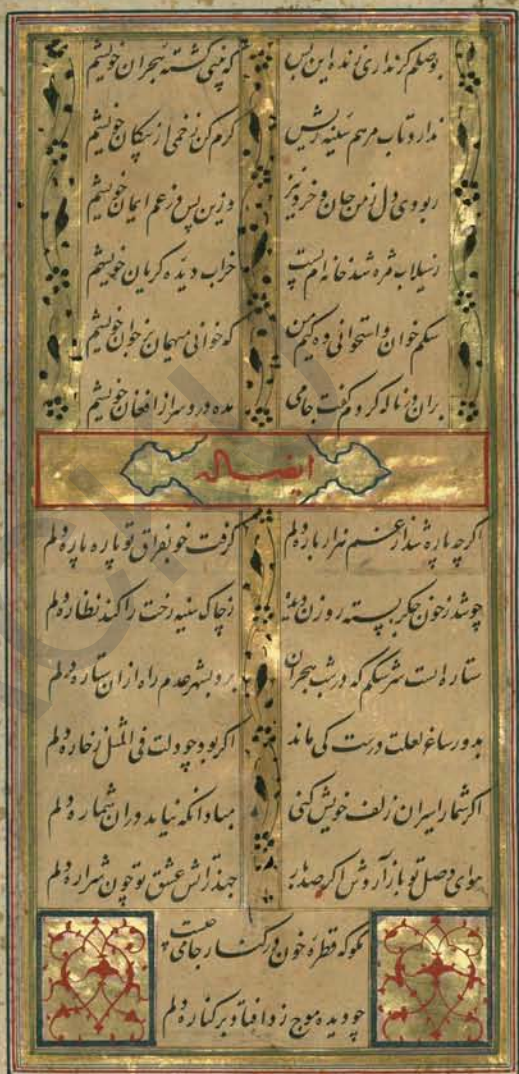 بوصلم کر نداری زنده این بس که منی کشته هجران خویشم
ندارد تاب مرهم سینه ریش کرم کن زخمی از پیکان خویشم
ربودی دل ز من جان و خرد نیز وزین پس در غم ایمان خویشم
ز سیلاب مژه شد خانه ام پست خراب دیده کریان خویشم
سکم خوان و استخوانی ده که من که خوانی میهمان بر خوان خویشم
بران در ناله کردم کفت جامی مده درد سر از افغان خویشم
ایضاله
اکرچه پاره شد از غم هزار باره دلم کرفت خو بفراق تو پاره پاره دلم
چو شد ز خون جکر بسته روزن دیده ز چاک سینه رخت را کند نظاره دلم
ستاره ایست سرشکم که در شب هجران برد بشهر عدم راه ازان ستاره دلم
بدور ساغر لعلت درست کی ماند اکر بود چو دلت فی المثل ز خاره دلم
اکر شمار اسیران زلف خویش کنی مباد آنکه نیاید دران شماره دلم
هوای وصل تو باز آردش اکر صد بار جهد ز آتش عشق تو چون شراره دلم
مکو که قطره خون در کنار جامی چیست
چو دیده موج زد افتاد بر کناره دلم